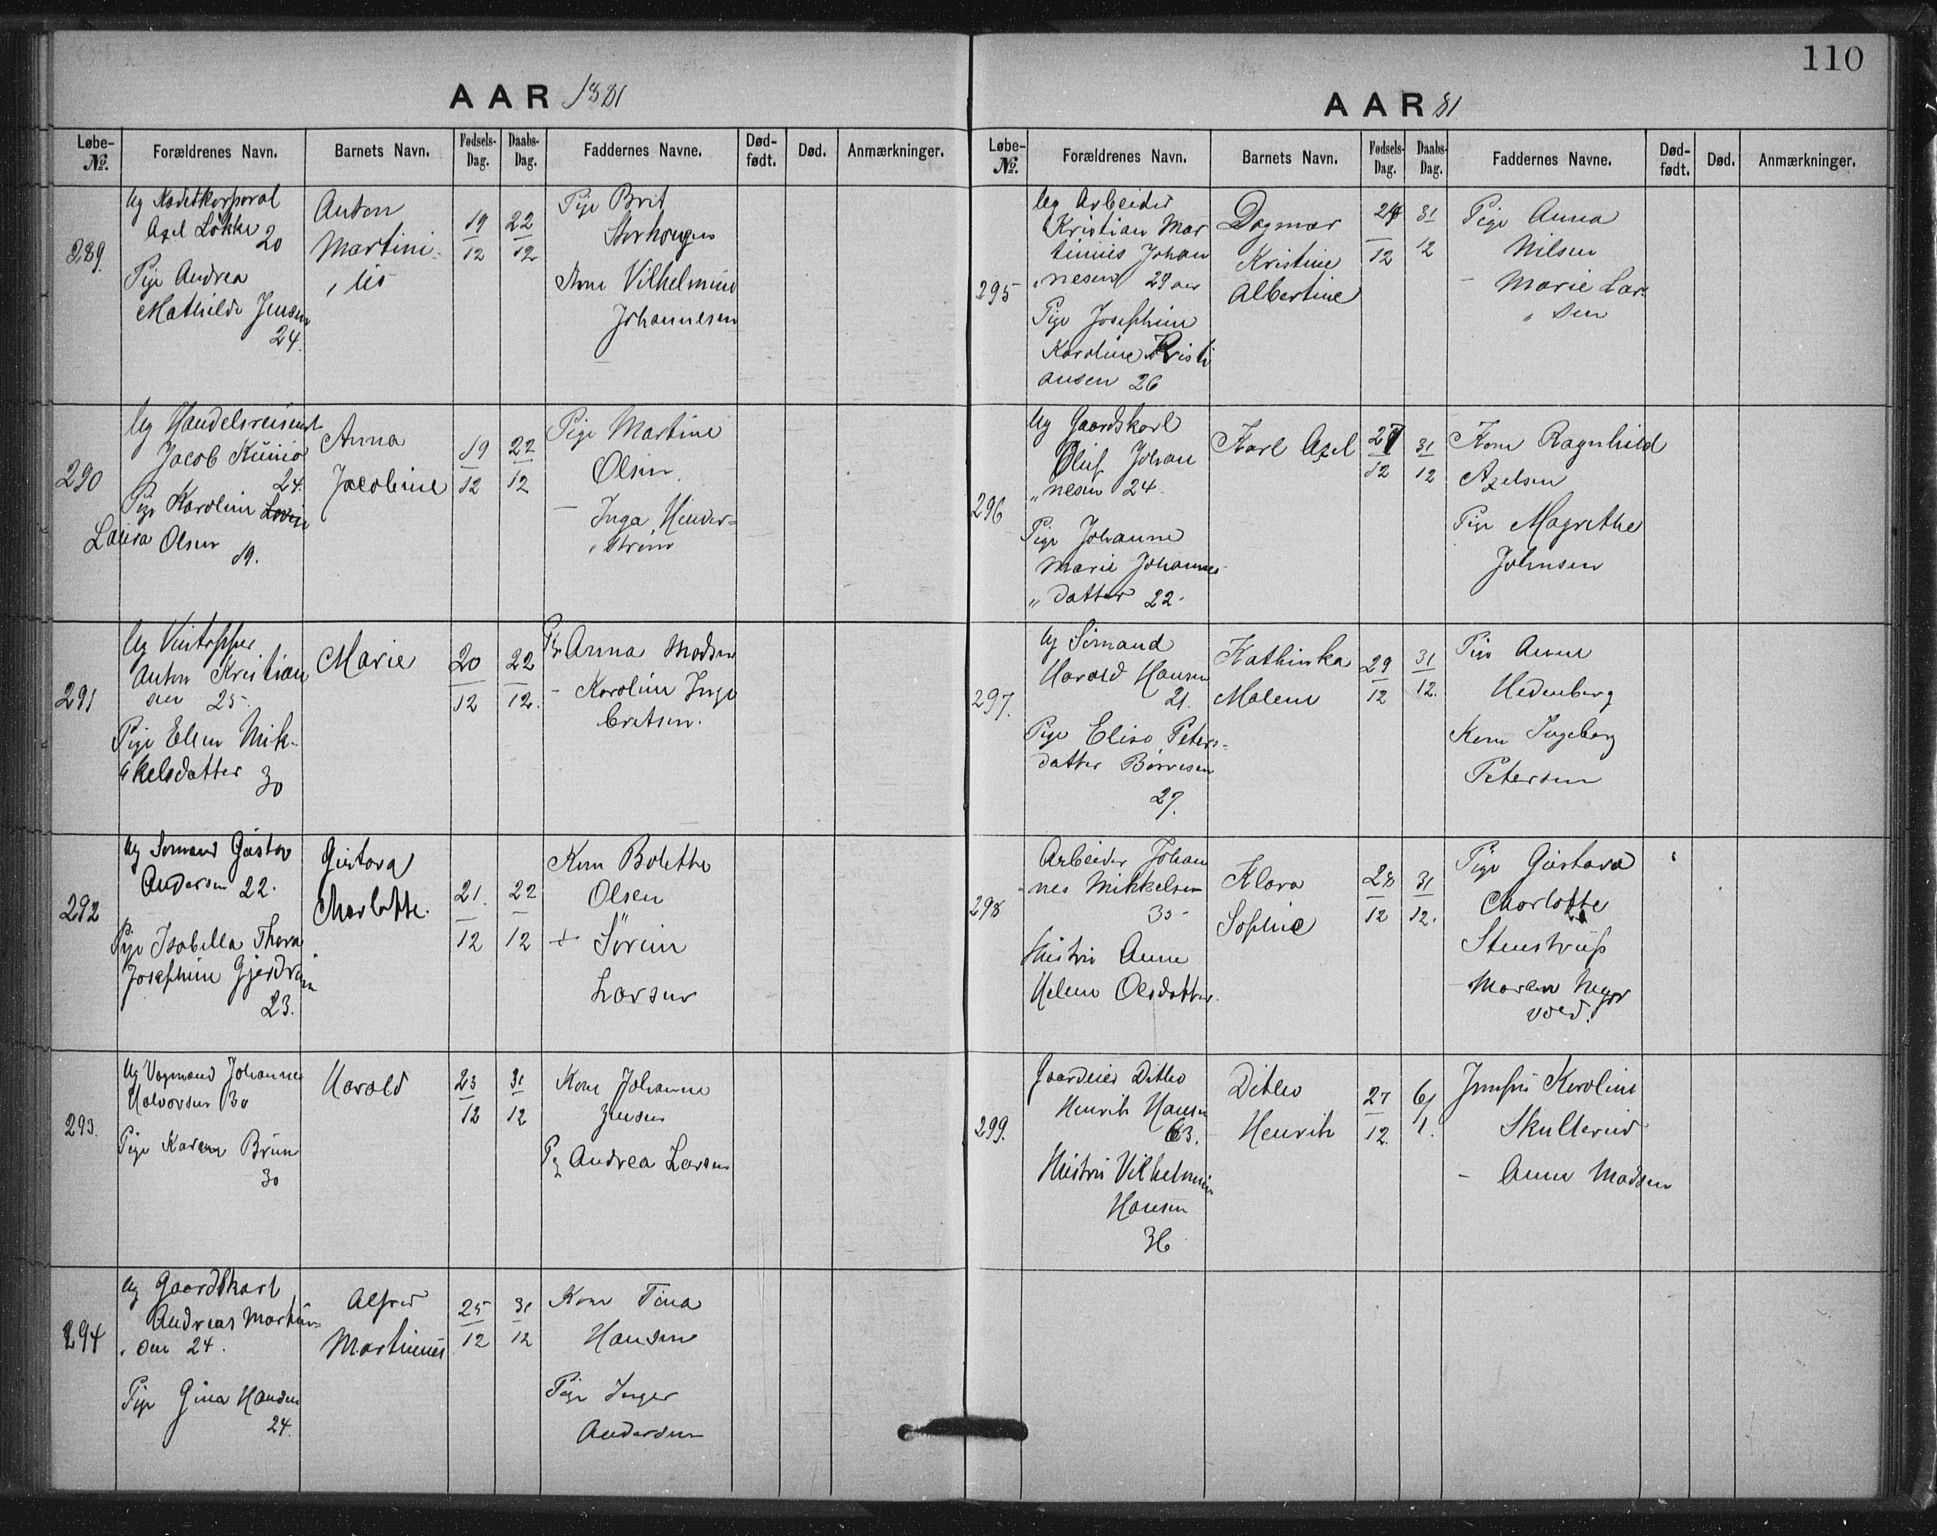 110
AAR 1881
Løbe-No. Forældrenes Navn. Barnets Navn. Fødsels-Dag. Daabs-Dag. Faddernes Navne. Død-født. Død. Anmærkninger.
289.
Ug Kadetkorporal
Axel Løkke 20
Pige Andrea
Mathilde Jensen
24.
Anton
Martini-
„ us
19/12
22/12
Pige Brit
Storhougen
Kone Vilhelmine
Johannesen
290
Ug Handelsreisende
Jacob
24.
Pige Karoline
Laura Olsen
19.
Anna
Jacobine
19/12
22/12
Pige Martine
Olsen
– Inga Hender-
„ strøm
291
Ug Vintapper
Anton Kristian
sen 25.
Pige Ellen Mik-
„ kelsdatter
30
Marie
20/12
22/12.
Pg Anna Madsen
– Karoline Inge
bretsen.
292
Ug Sømand Gustav
Andersen 22.
Pige Isabella Thora
Josephine
23.
Gustava
Charlotte.
21./12
22/12
Kone Bolette
Olsen
+ Sørine
Larsen
293.
Ug Vognmand Johannes
Halvorsen 30
Pige Karen Brun
30
Harald
23/12
31/12
Kone Johanne
Jensen
Pg Andrea Larsen
294
Ug Gaardskarl
Andreas Martin
„ sen 24.
Pige Gina Hansen
24.
Alfred
Martinus
25/12
31/12
Kone Tina
Hansen
Pige Inger
Andersen
AAR 81
Løbe-No. Forældrenes Navn. Barnets Navn. Fødsels-Dag. Daabs-Dag. Faddernes Navne. Død-født. Død. Anmærkninger.
295
Ug Arbeider
Kristian Mar
tinius Johan
„ nesen 29 aar
Pige Josephine
Karoline Kristi
ansen 26
Dagmar
Kristine
Albertine
/12
31/12
Pige Anna
Nilsen
– Marie Lar-
„ sen
296
Ug Gaardskarl
Oluf Johan
„ nesen 24.
Pige Johanne
Marie Johannes-
„ datter 22.
Karl Axel
27/12
31/12
Kone Ragnhild
Axelsen
Pige Magrethe
Johnsen
297.
Ug Sømand
Harald Hansen
21.
Pige Elise Peters-
datter Børresen
27.
Kathinka
Malene
29/12
31/12.
Pige Anne
Hedenberg
Kone Ingeborg
Petersen
298
Arbeider Johan
nes Mikkelsen
35
Hustru Anne
Helene Olsdatter.
Klara
Sophie
28/12
31/12.
Pige Gustava
Charlotte
Stenstrup
– Maren
vold.
299.
Gaardeier Ditlev
Henrik Hansen
63.
Hustru Vilhelmine
Hansen
36
Ditlev
Henrik
27/12.
6/1.
Jomfru Karoline
Skulterud
– Anne Madsen